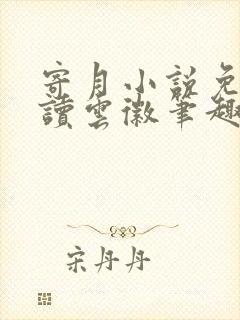 寄月小說免
讀雲徽筆趣
宋丹丹